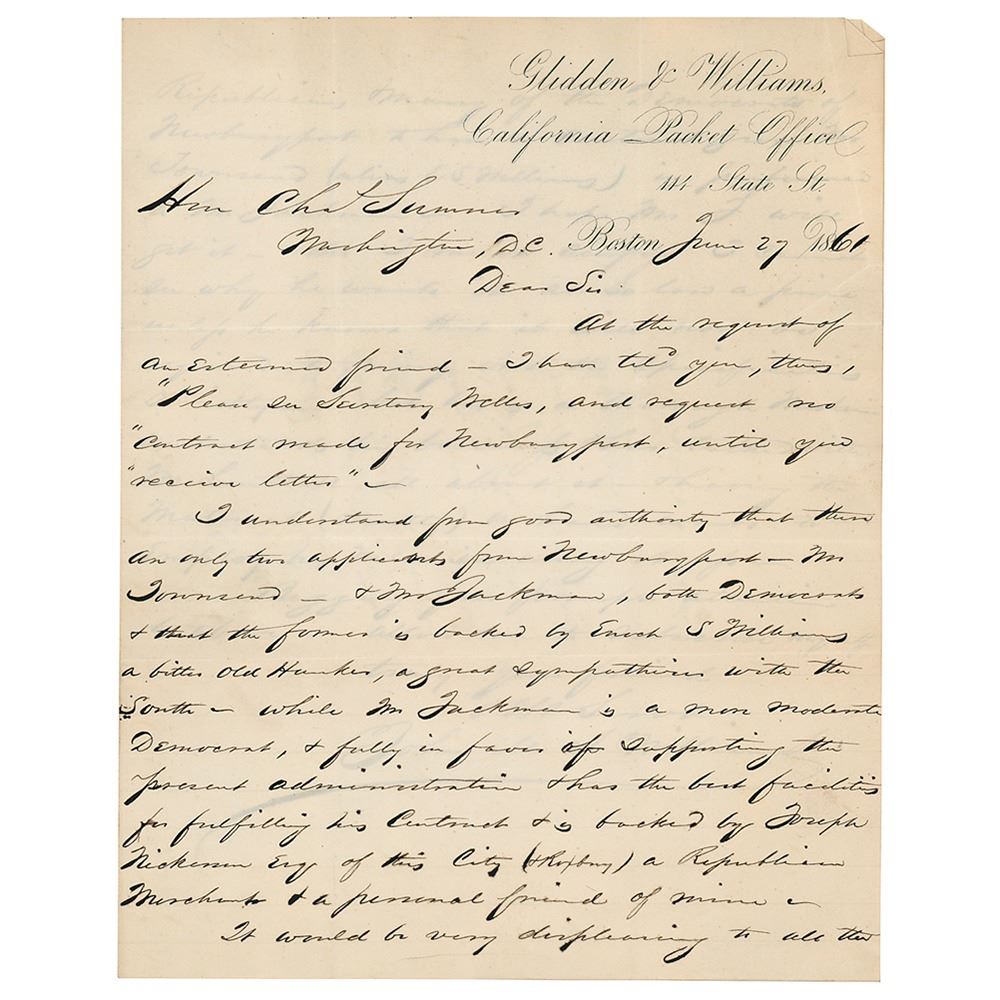 Glidden & Williams,
California Packet Office
114 State St.
Hon Chas Sumner
Washington, D.C. Boston June 27 1861
Dear Sir.
At the request of
an esteemed friend – I have teld you, thus,
"Please see Secretary Welles, and request no
"contract made for Newburyport, until you
"receive letter" –
I understand from good authority that there
are only two applicants from Newburyport – Mr
Townsend – & Mr Jackman, both Democrats
& that the former is backed by Enoch S Williams
a bitter old Hunker, a great sympathiser with the
South – while Mr Jackman is a more moderate
Democrat, & fully in favor of supporting the
present administration & has the best facilities
for fulfilling his Contract & is backed by Joseph
Nickerson Esq of this City (& Roxbury) a Republican
Merchant & a personal friend of mine –
It would be very displeasing to all the